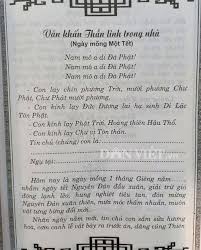 Văn khấn Thần linh trong nhà
(Ngày mồng Một Tết)
Nam mô a di Đà Phật!
Nam mô a di Đà Phật!
Nam mô a di Đà Phật!
- Con lạy chín phương Trời, mười phương Chư
Phật, Chư Phật mười phương.
- Con kính lạy Đức Đương lai hạ sinh Di Lặc
Tôn Phật.
- Con kính lạy Phật Trời, Hoàng thiên Hậu Thổ.
- Con kính lạy Chư vị Tôn thần.
Tín chủ (chúng) con là:
Ngụ tại:
DANVIET.vn
Hôm nay là ngày mồng 1 tháng Giêng năm
nhằm ngày tết Nguyên Đán đầu xuân, giải trừ gió
đông lạnh lẽo, hung nghiệt tiêu tan, đón mừng
Nguyên Đán xuân thiên, mưa móc thấm nhuần, muôn
vật tưng bừng đổi mới.
Nhân ngày năm mới, tín chủ con sắm sửa hương
hoa, cơm canh lễ vật bày ra trước án, dâng cúng Thiên